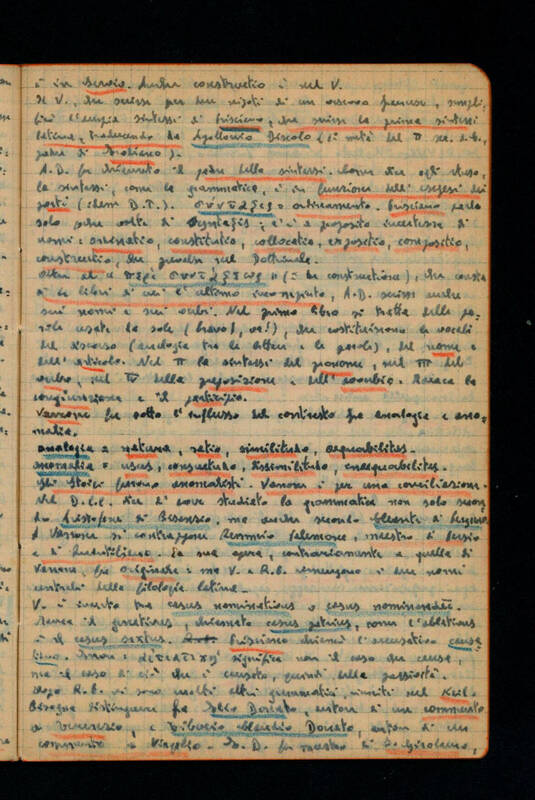 è in Servio. Anche constructio è nel V.
Il V., che scrisse per due nipoti di un vescovo francese, sempli-
ficò l'ampia sintassi di Prisciano, che scrisse la prima sintassi
latina, traducendo da Apollonio Discolo (1ª metà del II sec. d.C.,
padre di Erodiano).
A.D. fu chiamato il padre della sintassi. Come dice egli stesso,
la sintassi, come la grammatica, è in funzione dell'esegesi dei
poeti (idem D.T.). σύνταξις = ordinamento. Prisciano parla
solo poche volte di syntaxis; c'è a proposito incertezza di
nomi: ordinatio, constitutio, collocatio, expositio, compositio,
constructio, che prevalse nel Dottrinale.
Oltre al "περὶ συντάξεως" (= De constructione), che consta
di 4 libri di cui l'ultimo incompiuto, A.D. scrisse anche
sui nomi e sui verbi. Nel primo libro si tratta delle pa-
role usate da sole (bravo!, va!), che costituiscono le vocali
del discorso (analogia tra le lettere e le parole), del nome e
dell'articolo. Nel II la sintassi del pronome, nel III del
verbo, nel IV della preposizione e dell'avverbio. Manca la
congiunzione e il participio.
Varrone fu sotto l'influsso del contrasto fra analogia e ano-
malia.
analogia = natura, ratio, similitudo, aequabilitas.
anomalia = usus, consuetudo, dissimilitudo, inaequabilitas.
Gli Stoici furono anomalisti. Varrone è per una conciliazione.
Nel D.L.L. dice di aver studiato la grammatica non solo secon-
do Aristofane di Bisanzio, ma anche secondo Cleante di
A Varrone si contrappone Remmio Palemone, maestro di Persio
e di Quintiliano. La sua opera, contrariamente a quella di
Varrone, fu originale: ma V. e R.P. rimangono i due nomi
centrali della filologia latina.
V. è incerto tra casus nominativus o casus nominandi.
Manca il genetivus, chiamato casus patrius, come l'ablativus
è il casus sextus. Prisciano chiamò l'accusativo causa-
tivo. αἰτιατική significa non il caso che causa,
ma il caso di ciò che è causato, quindi della passività.
Dopo R.P. vi sono molti altri grammatici, riuniti nel Keil.
Bisogna distinguere fra Elio Donato, autore di un commento
a Terenzio, e Tiberio Claudio Donato, autore di un
commento a Virgilio. E.D. fu maestro di S. Girolamo,